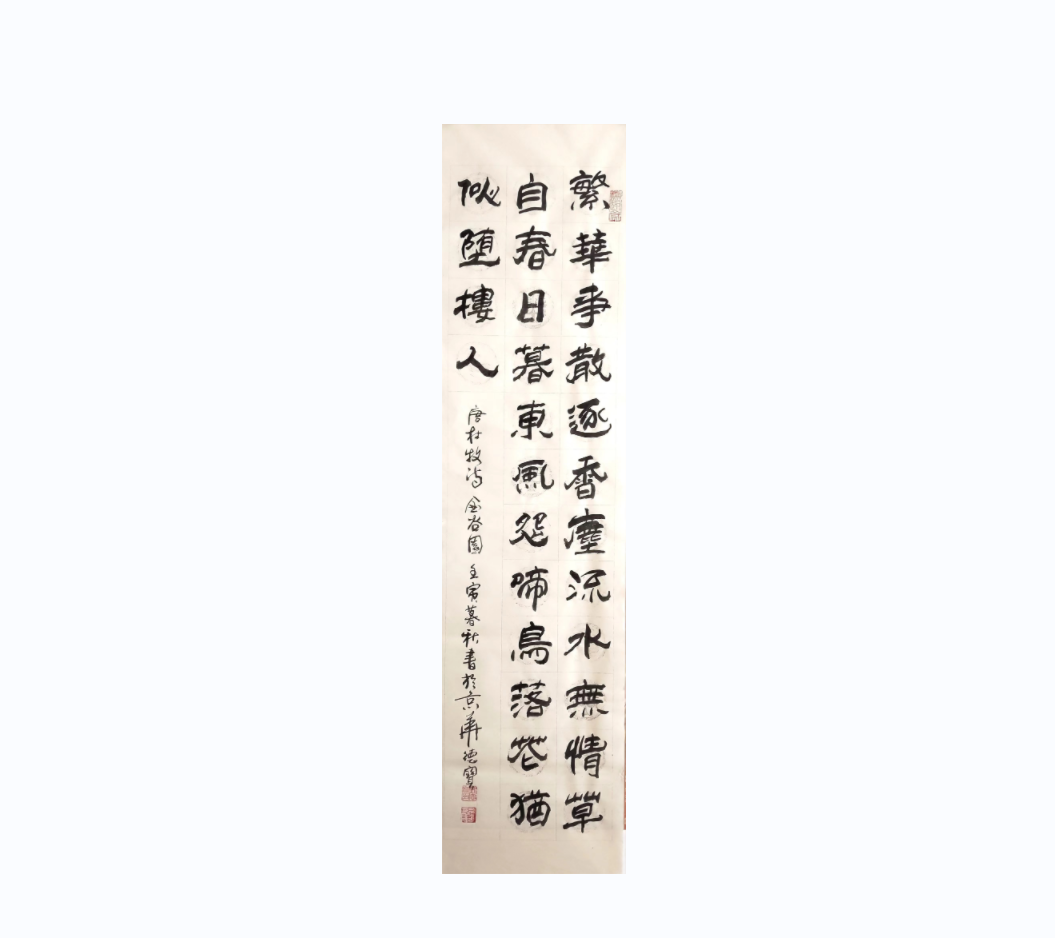 繁華爭散逐香塵流水無情草
自春日暮東風怨啼鳥落花猶
似堕樓人
唐杜牧詩 金谷園 壬寅暮秋書於京華 德寶